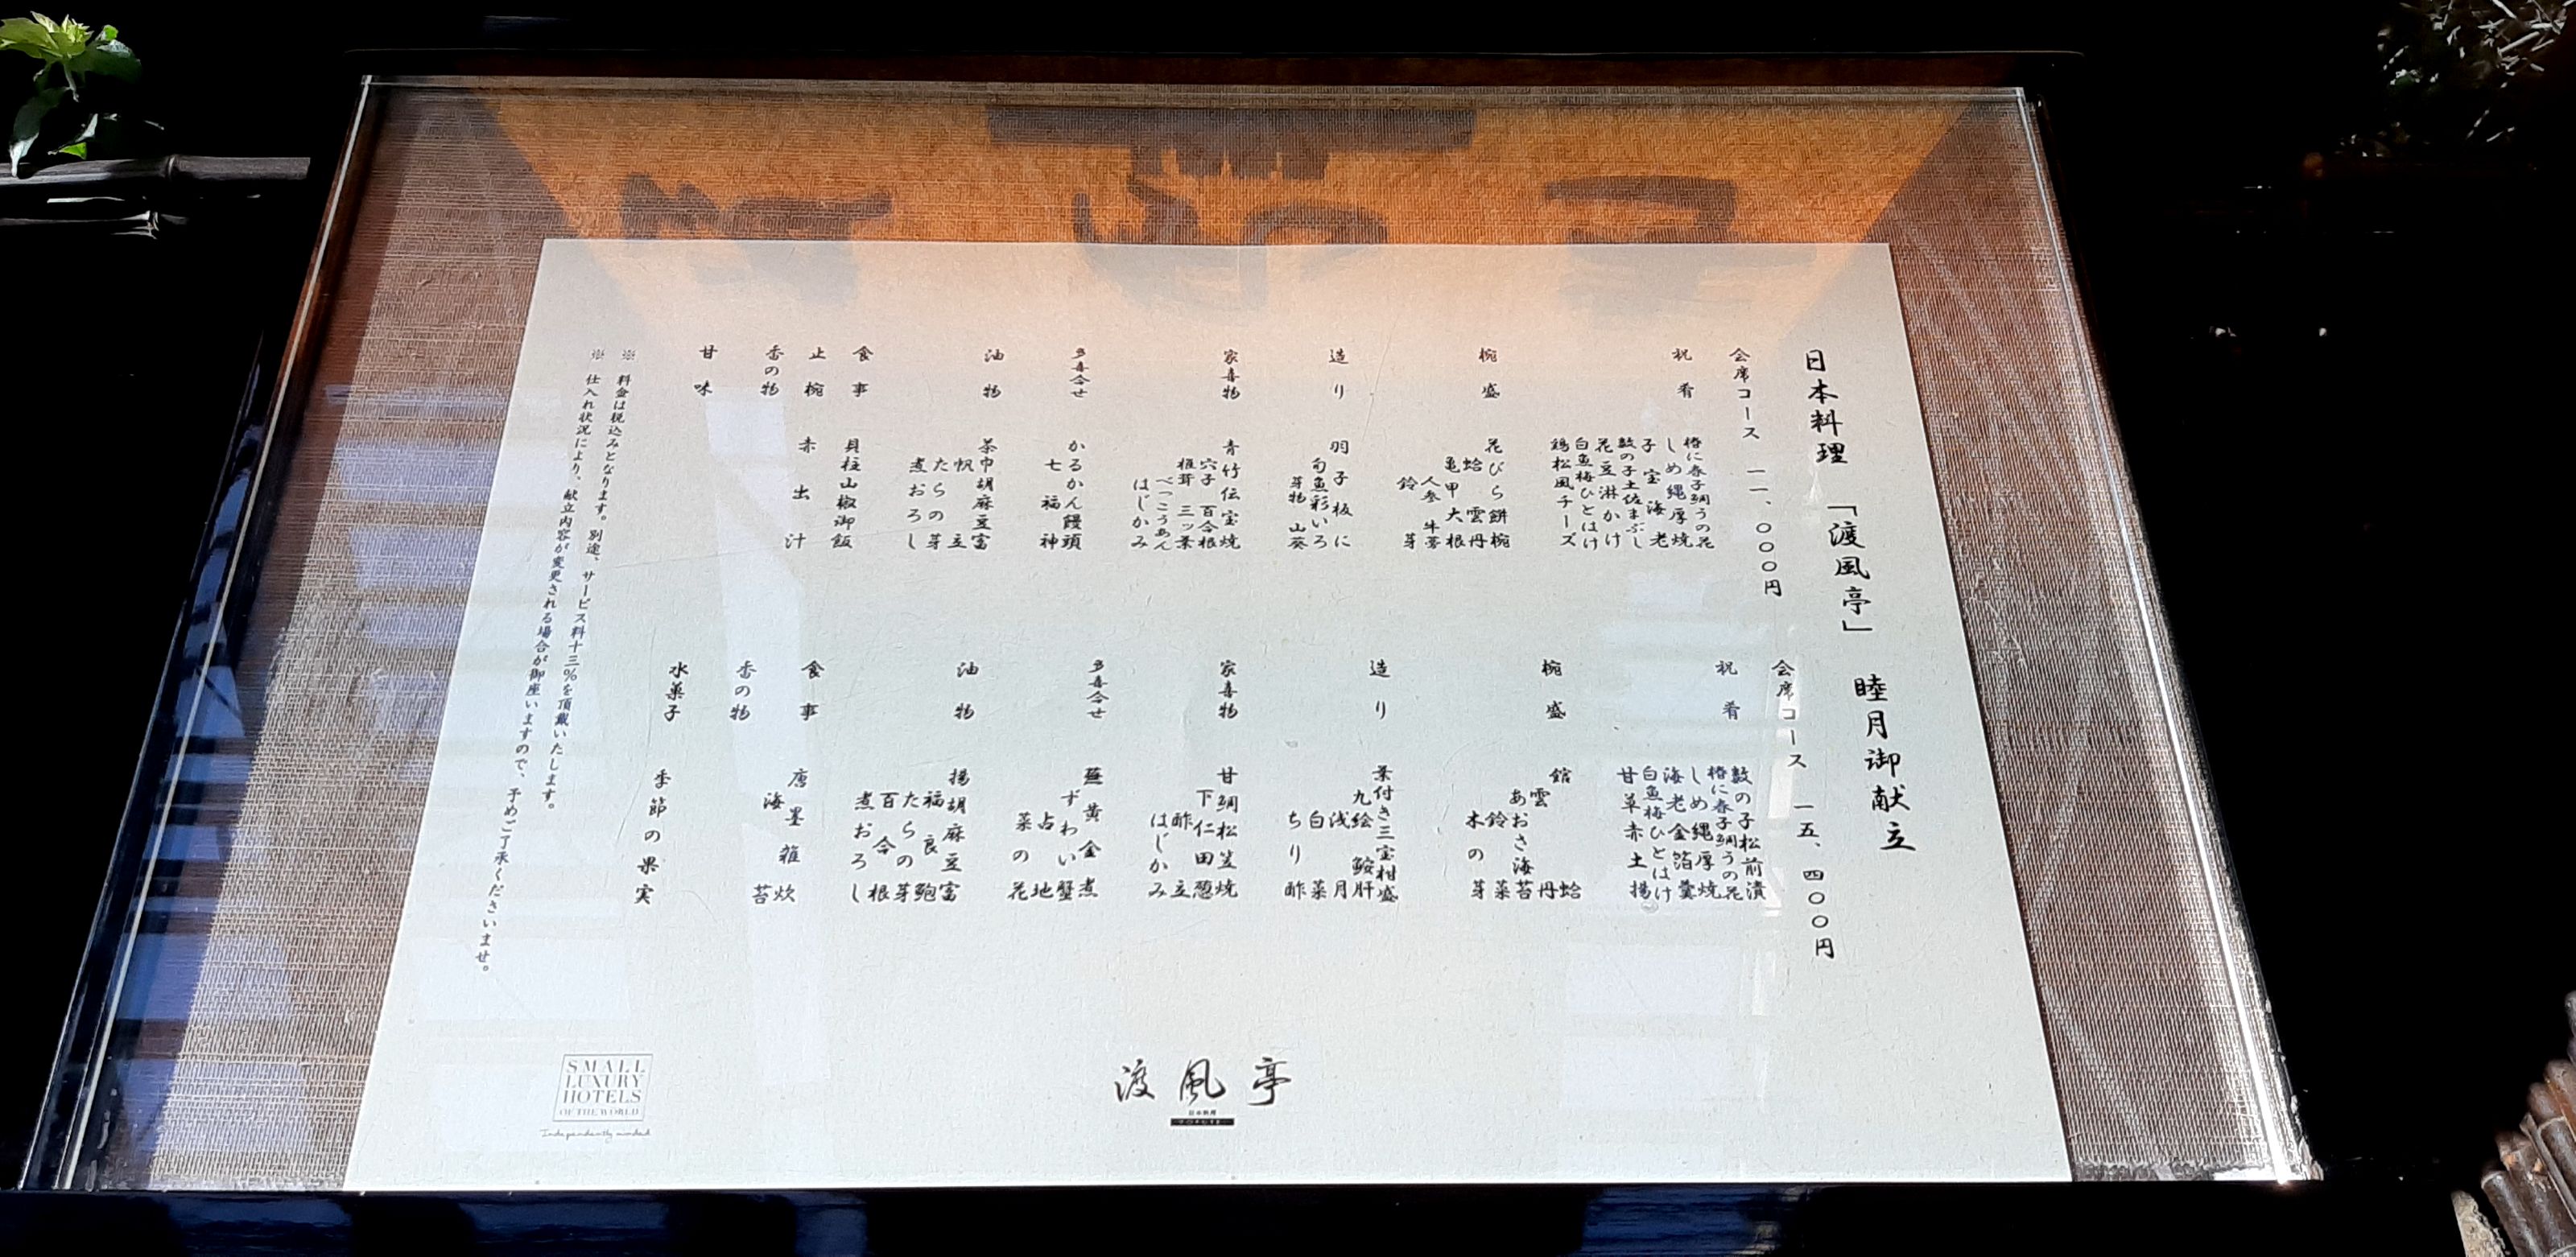 日本料理 「渡風亭」 睦月御献立
会席コース 一一、〇〇〇円
祝肴
椿に春子鯛うの花
しめ縄厚焼
子宝海老
数の子土佐まぶし
花豆淋かけ
白魚梅ひとはけ
鶏松風チーズ
椀盛
花びら餅椀
蛤 雲丹
亀甲大根
人参 牛蒡
鈴芽
造り
羽子板に
旬魚彩いろ
芽物 山葵
家喜物
青竹伝宝焼
穴子 百合根
椎茸 三ッ葉
べっこうあん
はじかみ
多喜合せ
かるかん饅頭
七福神
油物
茶巾胡麻豆富
帆立
たらの芽
煮おろし
食事
貝柱山椒御飯
止椀
赤出汁
香の物
甘味
会席コース 一五、四〇〇円
祝肴
数の子松前漬
椿に春子鯛うの花
しめ縄厚焼
海老金箔羹
白魚梅ひとはけ
甘草赤土揚
椀盛
蛤
雲丹
あおさ海苔
鈴菜
木の芽
造り
葉付き三宝柑盛
九絵 鮟肝
浅月
白菜
ちり酢
家喜物
甘鯛松笠焼
下仁田葱
酢立
はじかみ
多喜合せ
蕪黄金煮
ずわい蟹
占地
菜の花
油物
揚胡麻豆富
福良鮑
たらの芽
百合根
煮おろし
食事
唐墨雑炊
海苔
香の物
水菓子
季節の果実
※ 料金は税込みとなります。別途、サービス料十三%を頂戴いたします。
※ 仕入れ状況により、献立内容が変更される場合が御座いますので、予めご了承くださいませ。
渡風亭
日本料理
SMALL
LUXURY
HOTELS
OF THE WORLD
Independently minded